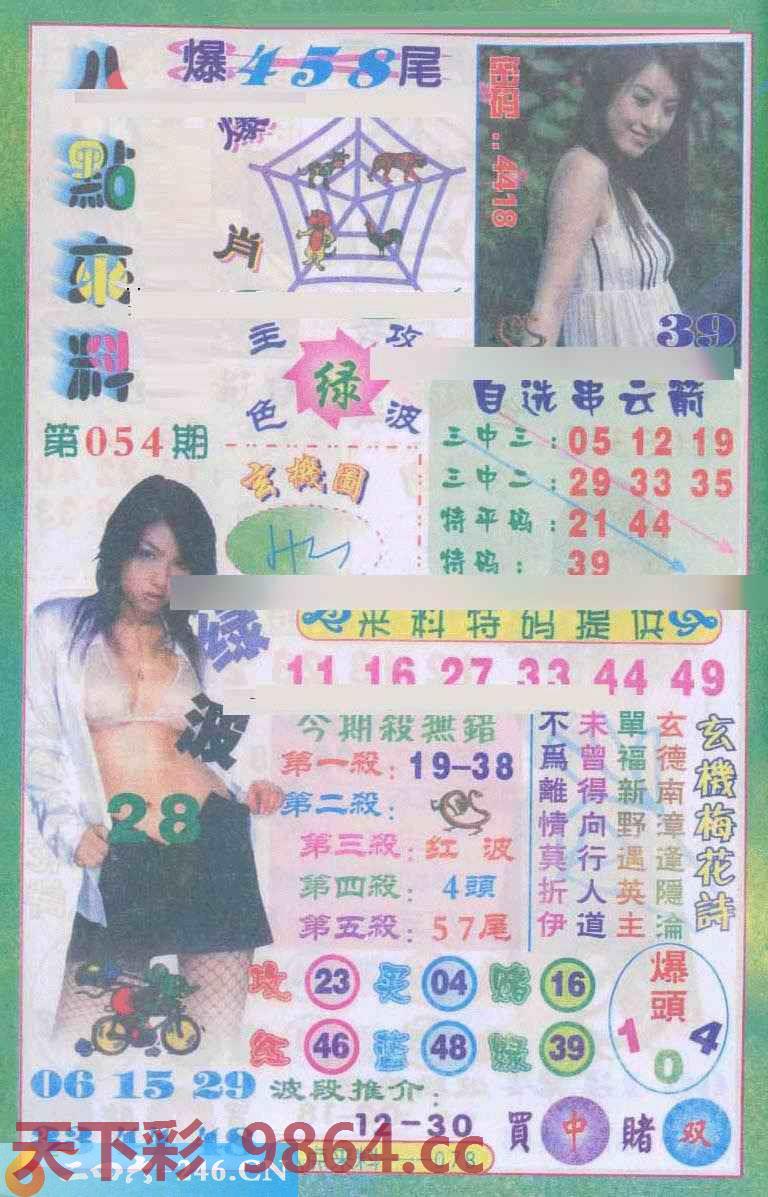 八
點
來
料
第054期
爆458尾
爆
肖
主 攻
绿
色 波
玄機圖
出
4418
39
自选串云箭
三中三: 05 12 19
三中二: 29 33 35
特平码: 21 44
特码: 39
来料特码提供
11 16 27 33 44 49
绿
波
28
今期殺無錯
第一殺: 19-38
第二殺:
第三殺: 红波
第四殺: 4頭
第五殺: 57尾
玄機梅花詩
玄德南漳逢隱淪
單福新野遇英主
未曾得向行人道
不爲離情莫折伊
攻 23 买 04 赌 16
红 46 蓝 48 绿 39
爆頭
1 0 4
06 15 29
波段推介:
12-30
買 中 賭 双
天下彩.9864.cc
二四六 246.CN